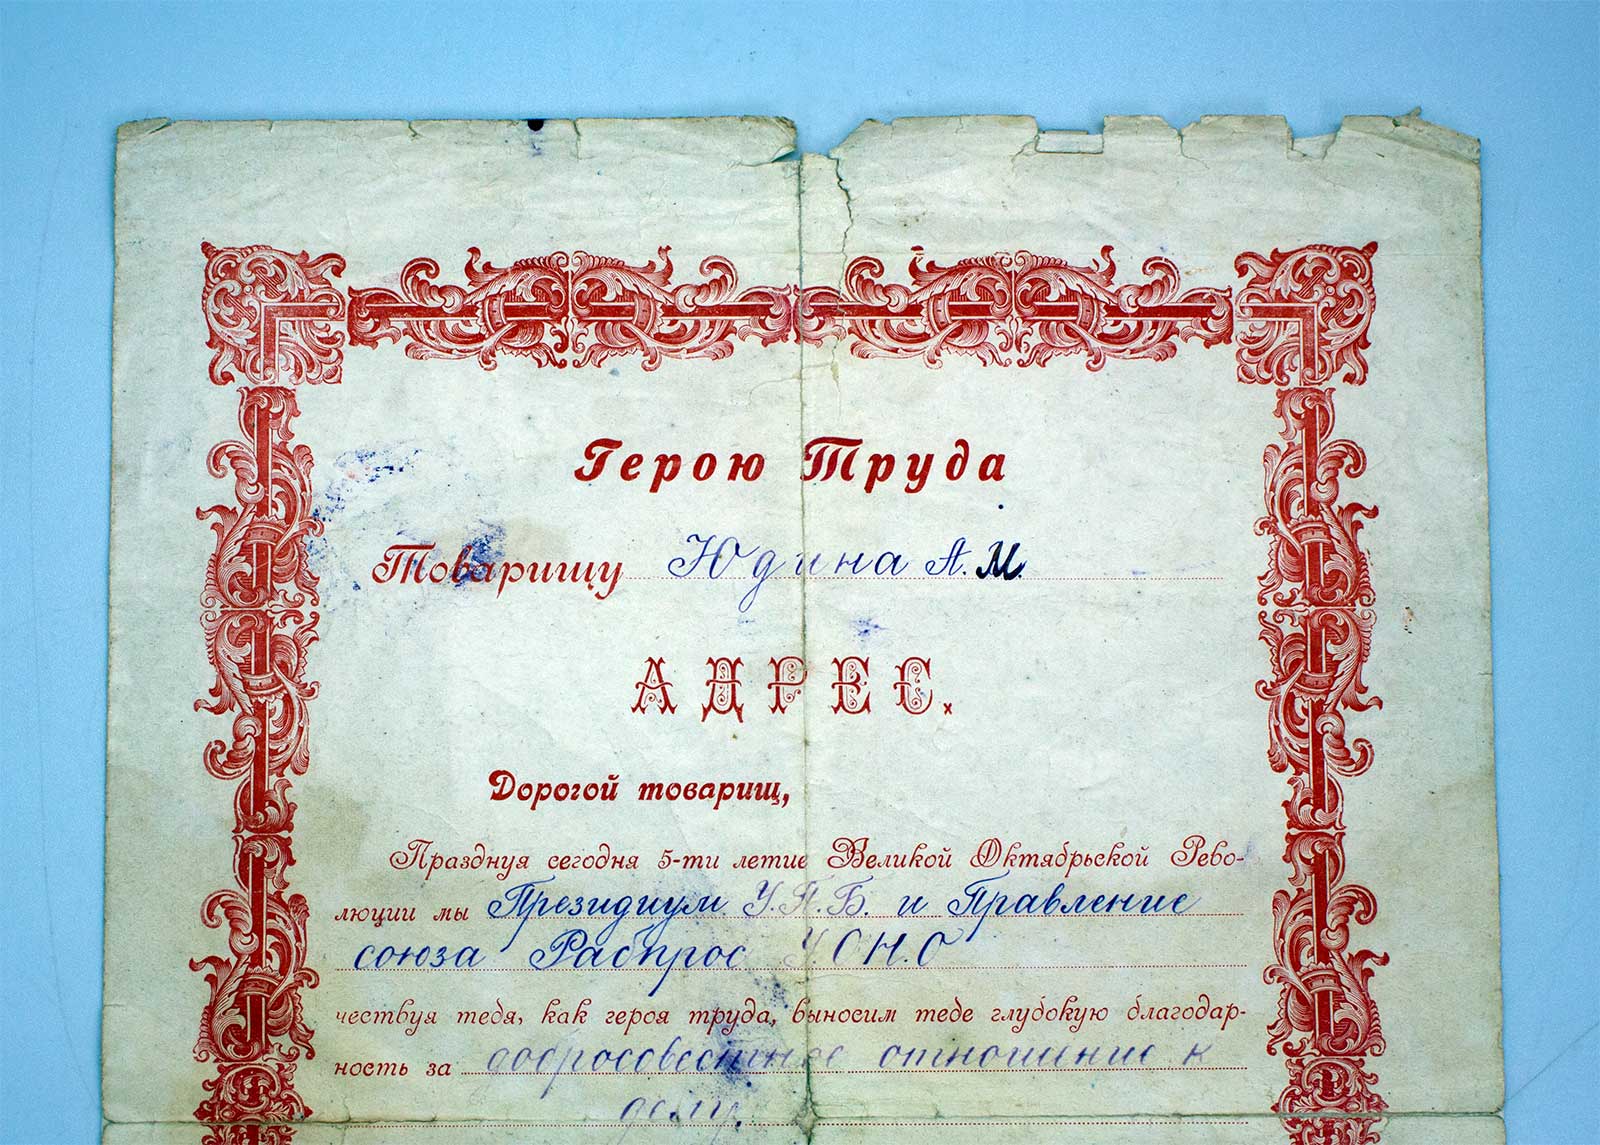 Герою Труда
Товарищу Юдина А.М.
АДРЕС.
Дорогой товарищ,
Празднуя сегодня 5-ти летие Великой Октябрьской Рево-
люции мы Президиум У.П.Б. и Правление
союза Рабпрос У.О.Н.О
чествуя тебя, как героя труда, выносим тебе глубокую благодар-
ность за добросовестное отношение к
делу.